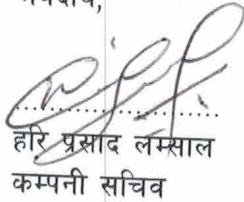 ..............................
हरि प्रसाद लम्साल
कम्पनी सचिव